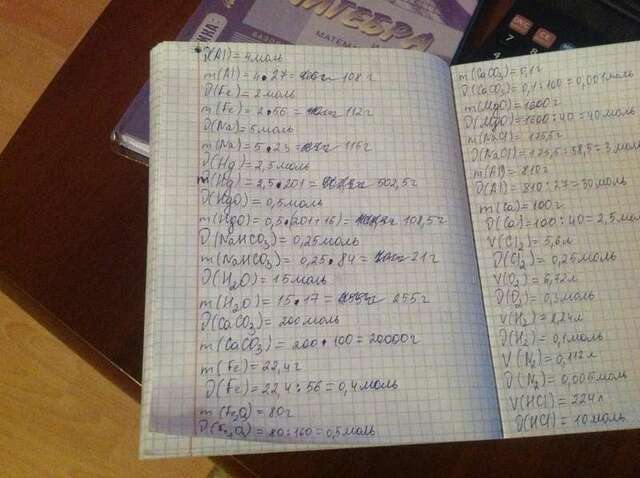 АЛГЕБРА
МАТЕМ
ν(Al) = 4 моль
m(Al) = 4 • 27 = 108 г
ν(Fe) = 2 моль
m(Fe) = 2 • 56 = 112 г
ν(Na) = 5 моль
m(Na) = 5 • 23 = 115 г
ν(Hg) = 2,5 моль
m(Hg) = 2,5 • 201 = 502,5 г
ν(HgO) = 0,5 моль
m(HgO) = 0,5 • (201 + 16) = 108,5 г
ν(NaHCO3) = 0,25 моль
m(NaHCO3) = 0,25 • 84 = 21 г
ν(H2O) = 15 моль
m(H2O) = 15 • 17 = 255 г
ν(CaCO3) = 200 моль
m(CaCO3) = 200 • 100 = 20000 г
m(Fe) = 22,4 г
ν(Fe) = 22,4 : 56 = 0,4 моль
m(Fe2O3) = 80 г
ν(Fe2O3) = 80 : 160 = 0,5 моль
m(CaCO3) = 0,1 г
ν(CaCO3) = 0,1 : 100 = 0,001 моль
m(MgO) = 1600 г
ν(MgO) = 1600 : 40 = 40 моль
m(NaCl) = 175,5 г
ν(NaCl) = 175,5 : 58,5 = 3 мол
m(Al) = 810 г
ν(Al) = 810 : 27 = 30 моль
m(Ca) = 100 г
ν(Ca) = 100 : 40 = 2,5 мол
V(Cl2) = 5,6 л
ν(Cl2) = 0,25 моль
V(O2) = 6,72 л
ν(O2) = 0,3 моль
V(H2) = 2,24 л
ν(H2) = 0,1 моль
V(N2) = 0,112 л
ν(N2) = 0,005 моль
V(HCl) = 224 л
ν(HCl) = 10 моль